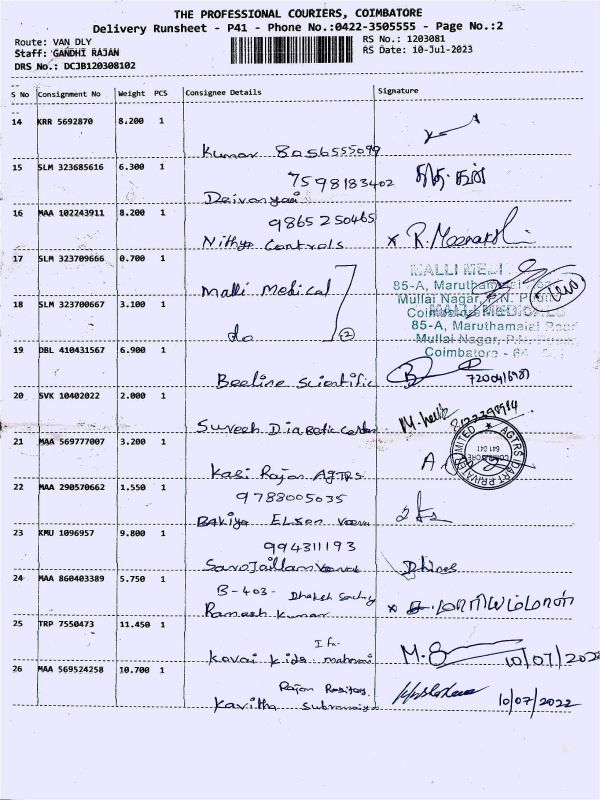 THE PROFESSIONAL COURIERS, COIMBATORE
Delivery Runsheet - P41 - Phone No.:0422-3505555 - Page No.:2
Route: VAN DLY
RS No.: 1203081
Staff: GANDHI RAJAN
RS Date: 10-Jul-2023
DRS No.: DCJB120308102
S No Consignment No Weight PCS Consignee Details Signature
14 KRR 5692870 8.200 1
Kumar 8056555099
15 SLM 323685616 6.300 1
7598183402
Deivanyai
16 MAA 102243911 8.200 1
9865250465
Nithya Controls R. Meenakshi
17 SLM 323709666 0.700 1
Malli Medical
MALLI MEDI
85-A, Maruthamalai
Mullai Nagar, P.N.
18 SLM 323700667 3.100 1
do (2)
MALLI MEDICALS
85-A, Maruthamalai Road
Mullai Nagar, P.N.
Coimbatore - 64
19 DBL 410431567 6.900 1
Beeline Scientific 7200416981
20 SVK 10402022 2.000 1
Suresh Diabetic Center
21 MAA 569777007 3.200 1
Kasi Rajan AGTRS
COIMBATORE
641 041
22 MAA 290570662 1.550 1
9788005035
Bakiya Elsen Veena
23 KMU 1096957 9.800 1
994311193
Sarojaillam
24 MAA 860403389 5.750 1
B-403-
Ramesh Kumar மாரியம்மாள்
25 TRP 7550473 11.450 1
Kovai Kids M.S 10/07/202
26 MAA 569524258 10.700 1
Rajan
Kavitha 10/07/2022